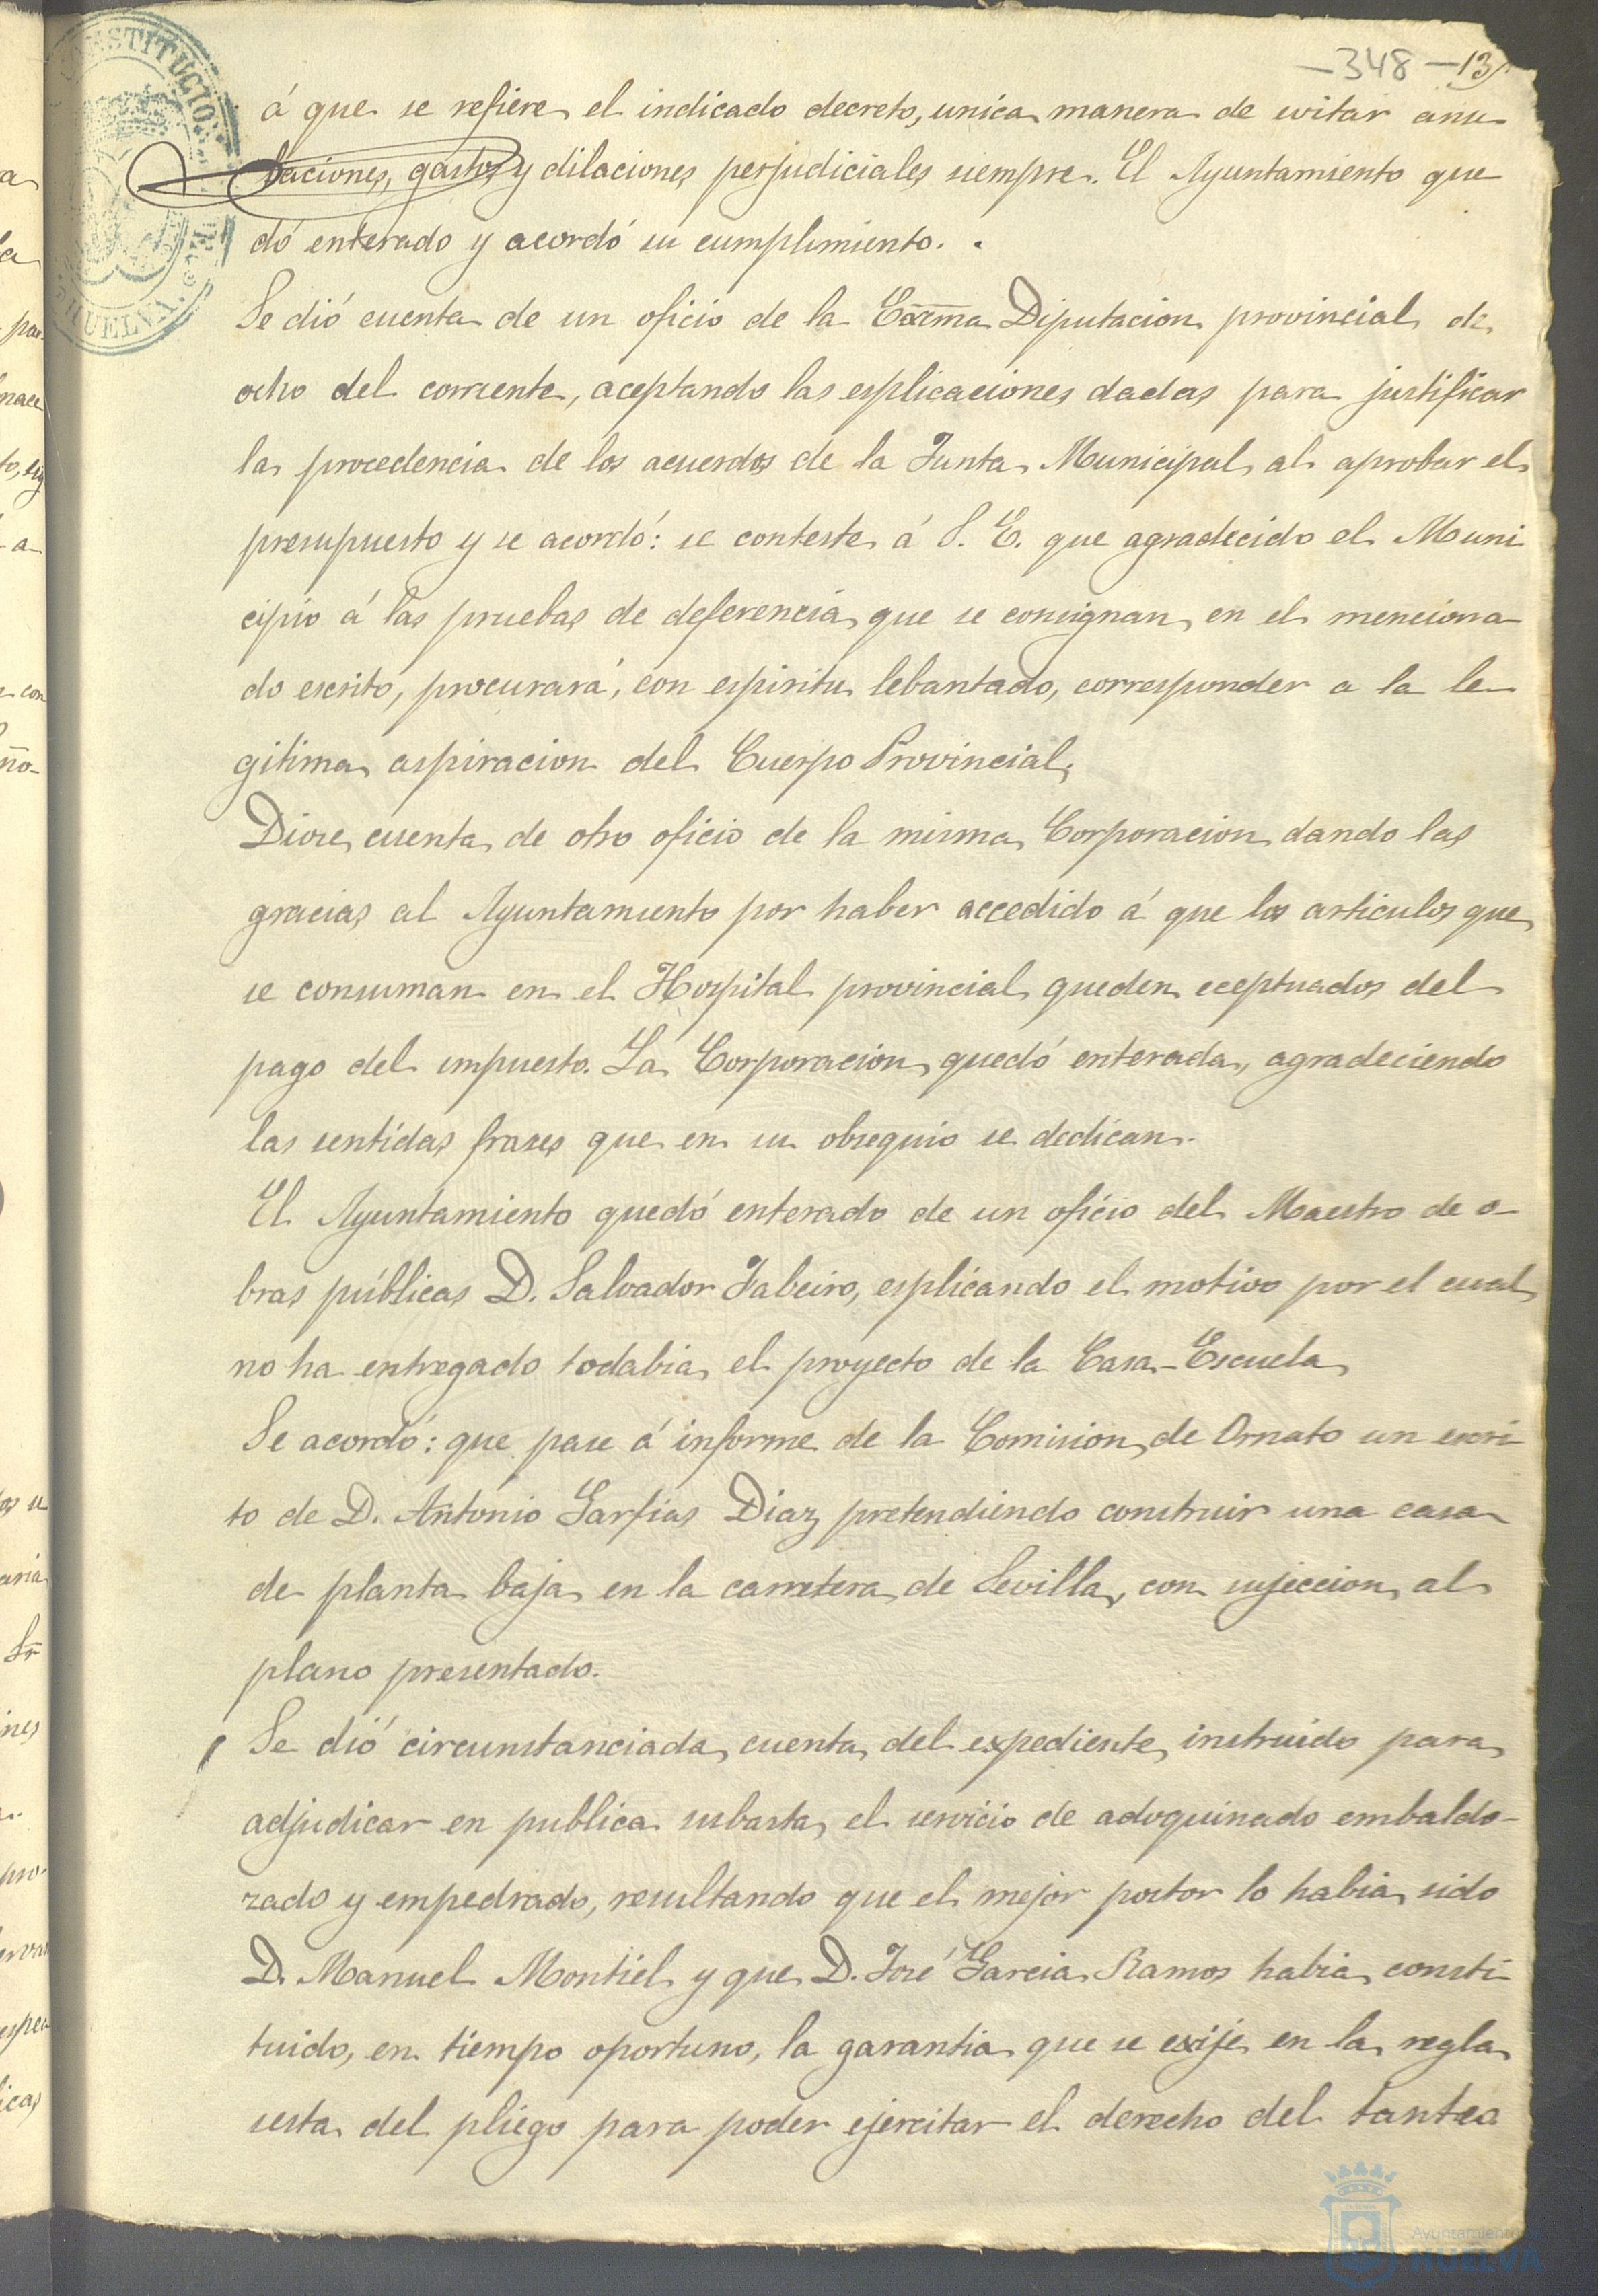 -348-13
á que se refiere el indicado decreto, unica manera de evitar anu
laciones, gastos y dilaciones perjudiciales siempre. El Ayuntamiento que
dó enterado y acordó su cumplimiento.
Se dió cuenta de un oficio de la Excma Diputacion provincial de
ocho del corriente, aceptando las esplicaciones dadas para justificar
la procedencia de los acuerdos de la Junta Municipal al aprobar el
presupuesto y se acordó: se conteste á S. E. que agradecido el Muni
cipio á las pruebas de deferencia que se consignan en el menciona
do escrito, procurará, con espiritu lebantado, corresponder a la le-
gitima aspiracion del Cuerpo Provincial.
Diose cuenta de otro oficio de la misma Corporacion dando las
gracias al Ayuntamiento por haber accedido á que los articulos que
se consuman en el Hospital provincial queden eceptuados del
pago del impuesto. La Corporacion quedó enterada, agradeciendo
las sentidas frases que en su obsequio se dedican.
El Ayuntamiento quedó enterado de un oficio del Maestro de o-
bras públicas D. Salvador Tabeiro, esplicando el motivo por el cual
no ha entregado todabia el proyecto de la Casa-Escuela
Se acordó: que pase á informe de la Comision de Ornato un escri
to de D. Antonio Garfias Diaz pretendiendo construir una casa
de planta baja en la carretera de Sevilla, con sujeccion al
plano presentado.
Se dió circunstanciada cuenta del expediente instruido para
adjudicar en publica subasta el servicio de adoquinado embaldo-
zado y empedrado, resultando que el mejor postor lo habia sido
D. Manuel Montiel y que D. José Garcia Ramos habia consti
tuido, en tiempo oportuno, la garantia que se exije en la regla
sesta del pliego para poder ejercitar el derecho del tanteo
Ayuntamiento
HUELVA